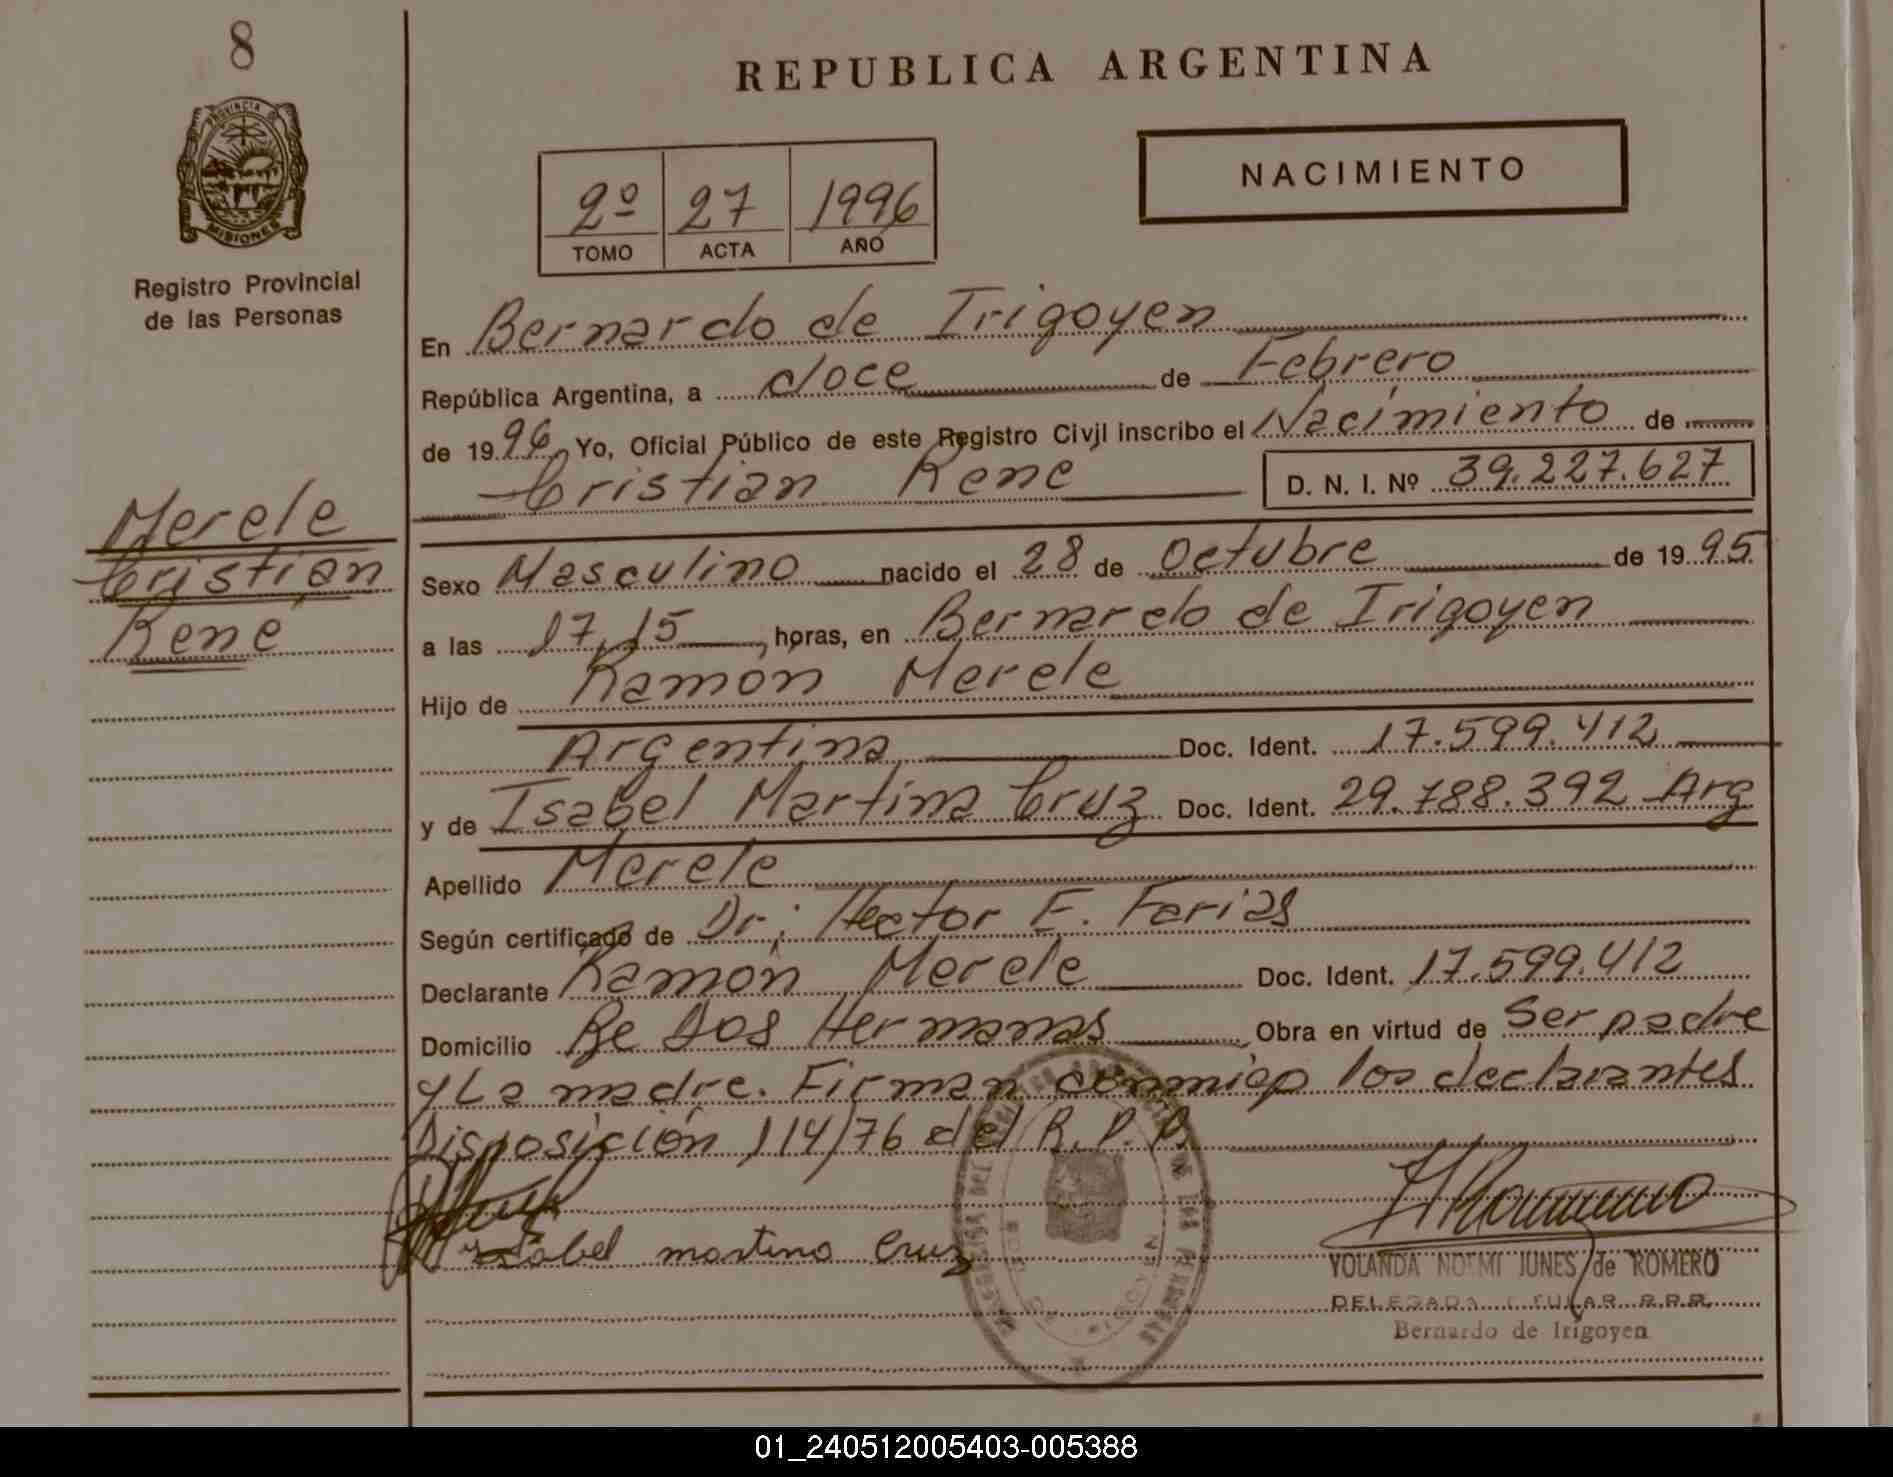 8
REPUBLICA ARGENTINA
PROVINCIA D
MISIONES
Registro Provincial
de las Personas
2º 27 1996
TOMO ACTA AÑO
NACIMIENTO
En Bernardo de Irigoyen
República Argentina, a doce de Febrero
de 1996 Yo, Oficial Público de este Registro Civil inscribo el Nacimiento de
Cristian Rene D. N. I. Nº 39.227.627
Merele
Cristian
René
Sexo Masculino nacido el 28 de Octubre de 1995
a las 17,15, horas, en Bernardo de Irigoyen
Hijo de Ramón Merele
Argentina Doc. Ident. 17.599.412
y de Isabel Martina Cruz Doc. Ident. 29.788.392 Arg
Apellido Merele
Según certificado de Dr: Hector E. Farias
Declarante Ramón Merele Doc. Ident. 17.599.412
Domicilio Be Dos Hermanas, Obra en virtud de Ser padre
y La madre. Firman conmigo los declarantes
Disposición 114/76 del R.P.P.
Isabel martina Cruz
YOLANDA NOEMI JUNES de ROMERO
DELEGADA TITULAR R.P.P.
Bernardo de Irigoyen
01_240512005403-005388